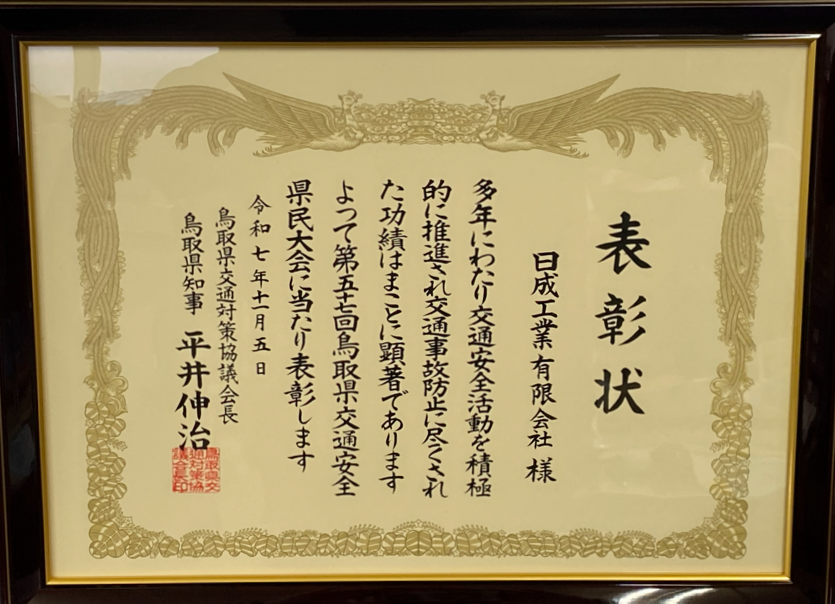 表彰状
日成工業有限会社 様
多年にわたり交通安全活動を積極
的に推進され交通事故防止に尽くされ
た功績はまことに顕著であります
よって第五十七回鳥取県交通安全
県民大会に当たり表彰します
令和七年十一月五日
鳥取県交通対策協議会長
鳥取県知事 平井伸治
鳥取県交
通対策協
議会長印